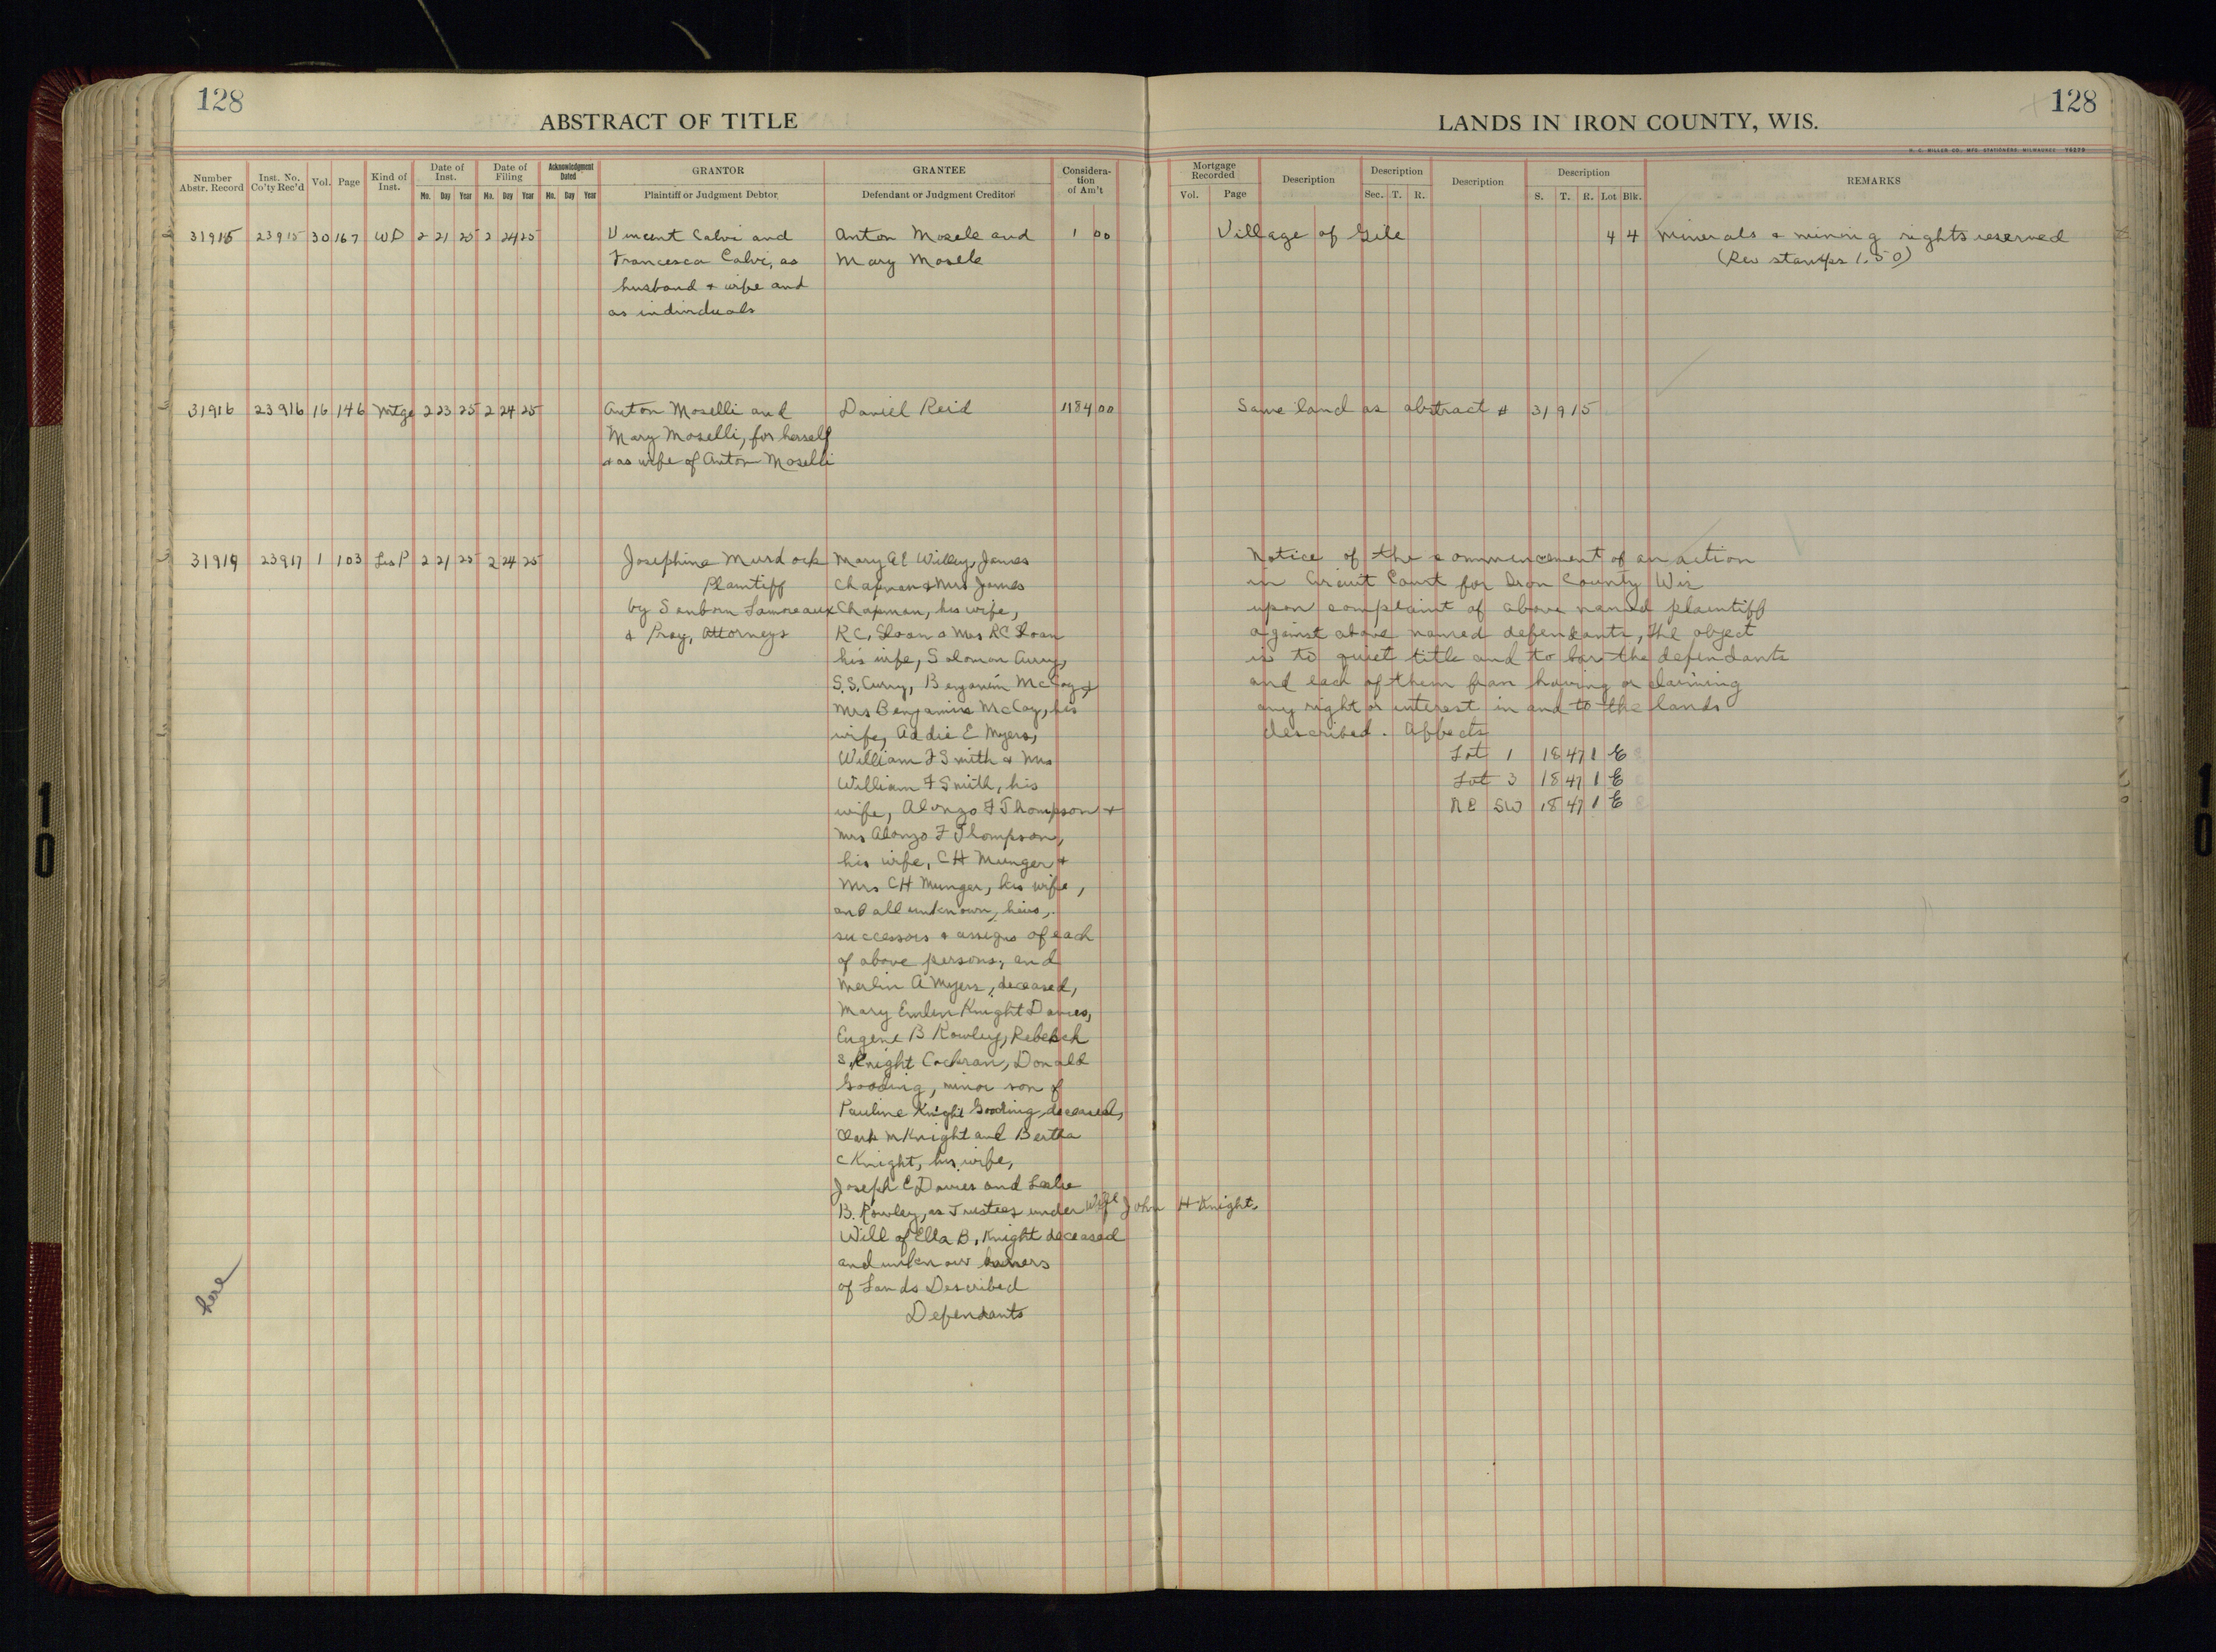 128
ABSTRACT OF TITLE
Number Abstr. Record
Inst. No. Co'ty Rec'd
Vol.
Page
Kind of Inst.
Date of Inst.
Mo. Day Year
Date of Filing
Mo. Day Year
Acknowledgment Dated
Mo. Day Year
GRANTOR
Plaintiff or Judgment Debtor
GRANTEE
Defendant or Judgment Creditor
Considera-
tion
of Am't
31915 23915 30 167 WD 2 21 25 2 24 25 Vincent Calvi and Anton Mosele and 1 00
Francesca Calvi, as Mary Mosele
husband & wife and
as individuals
31916 23916 16 146 Mtge 2 23 25 2 24 25 Anton Moselli and Daniel Reid 1184 00
Mary Moselli, for herself
& as wife of Anton Moselli
31919 23917 1 103 Lis P 2 21 25 2 24 25 Josephine Murdock Mary Willey, James
Plaintiff Chapman & Mrs James
by Sanborn Lamoreaux Chapman, his wife,
& Pray, Attorneys RC, Sloan & Mrs RC Sloan
his wife, Solomon Curry,
S.S. Curry, Benjamin McCoy &
Mrs Benjamin McCoy, his
wife, Addie E Myers,
William F Smith & Mrs
William F Smith, his
wife, Alonzo F Thompson &
Mrs Alonzo F Thompson,
his wife, CH Munger &
Mrs CH Munger, his wife,
and all unknown, heirs,
successors & assigns of each
of above persons, and
Merlin A Myers, deceased,
Mary Emlen Knight Davies,
Eugene B Rowley, Rebekah
S Knight Cochran, Donald
Gooding, minor son of
Pauline Knight Gooding, deceased,
Clark M Knight and Bertha
C Knight, his wife,
Joseph E Davies and Leslie
B. Rowley, as Trustees under Will John H Knight,
Will of Ella B, Knight deceased
and unknown owners
of Lands Described
Defendants
here
128
LANDS IN IRON COUNTY, WIS.
H. C. MILLER CO., MFG. STATIONERS, MILWAUKEE
Mortgage Recorded
Vol. Page
Description
Description
Sec. T. R.
Description
Description
S. T. R. Lot Blk.
REMARKS
Village of Gile 4 4 Minerals & mining rights reserved
(Rev stamps 1.50)
Same land as abstract # 31915
Notice of the commencement of an action
in Circuit Court for Iron County Wis
upon complaint of above named plaintiff
against above named defendants, the object
is to quiet title and to bar the defendants
and each of them from having or claiming
any right or interest in and to the lands
described. Affects
Lot 1 18 47 1 E
Lot 3 18 47 1 E
NE SW 18 47 1 E
10
10